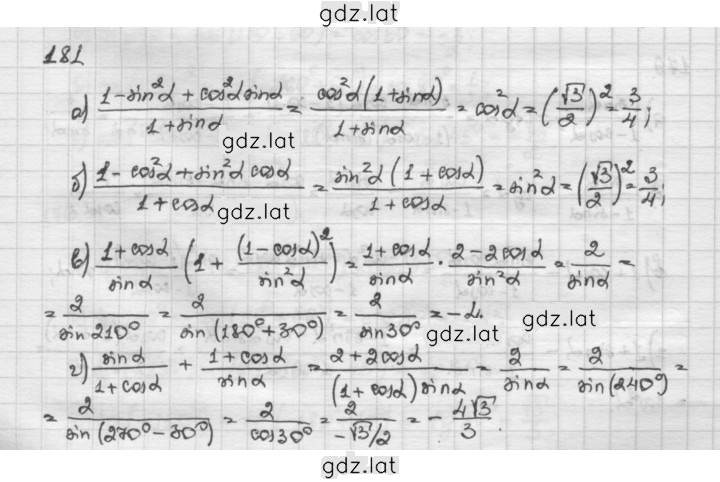 gdz.lat
181
а) (1-sin²α + cos²α sinα)/(1+sinα) = (cos²α(1+sinα))/(1+sinα) = cos²α = (√3/2)² = 3/4;
gdz.lat
б) (1-cos²α+sin²α cosα)/(1+cosα) = (sin²α(1+cosα))/(1+cosα) = sin²α = (√3/2)² = 3/4;
gdz.lat
в) (1+cosα)/sinα (1 + (1-cosα)²/sin²α) = (1+cosα)/sinα · (2-2cosα)/sin²α = 2/sinα =
= 2/sin210° = 2/sin(180°+30°) = 2/sin30° = -4.
gdz.lat gdz.lat
г) sinα/(1+cosα) + (1+cosα)/sinα = (2+2cosα)/((1+cosα)sinα) = 2/sinα = 2/sin(240°) =
= 2/sin(270°-30°) = 2/cos30° = 2/(-√3/2) = - 4√3/3.
gdz.lat